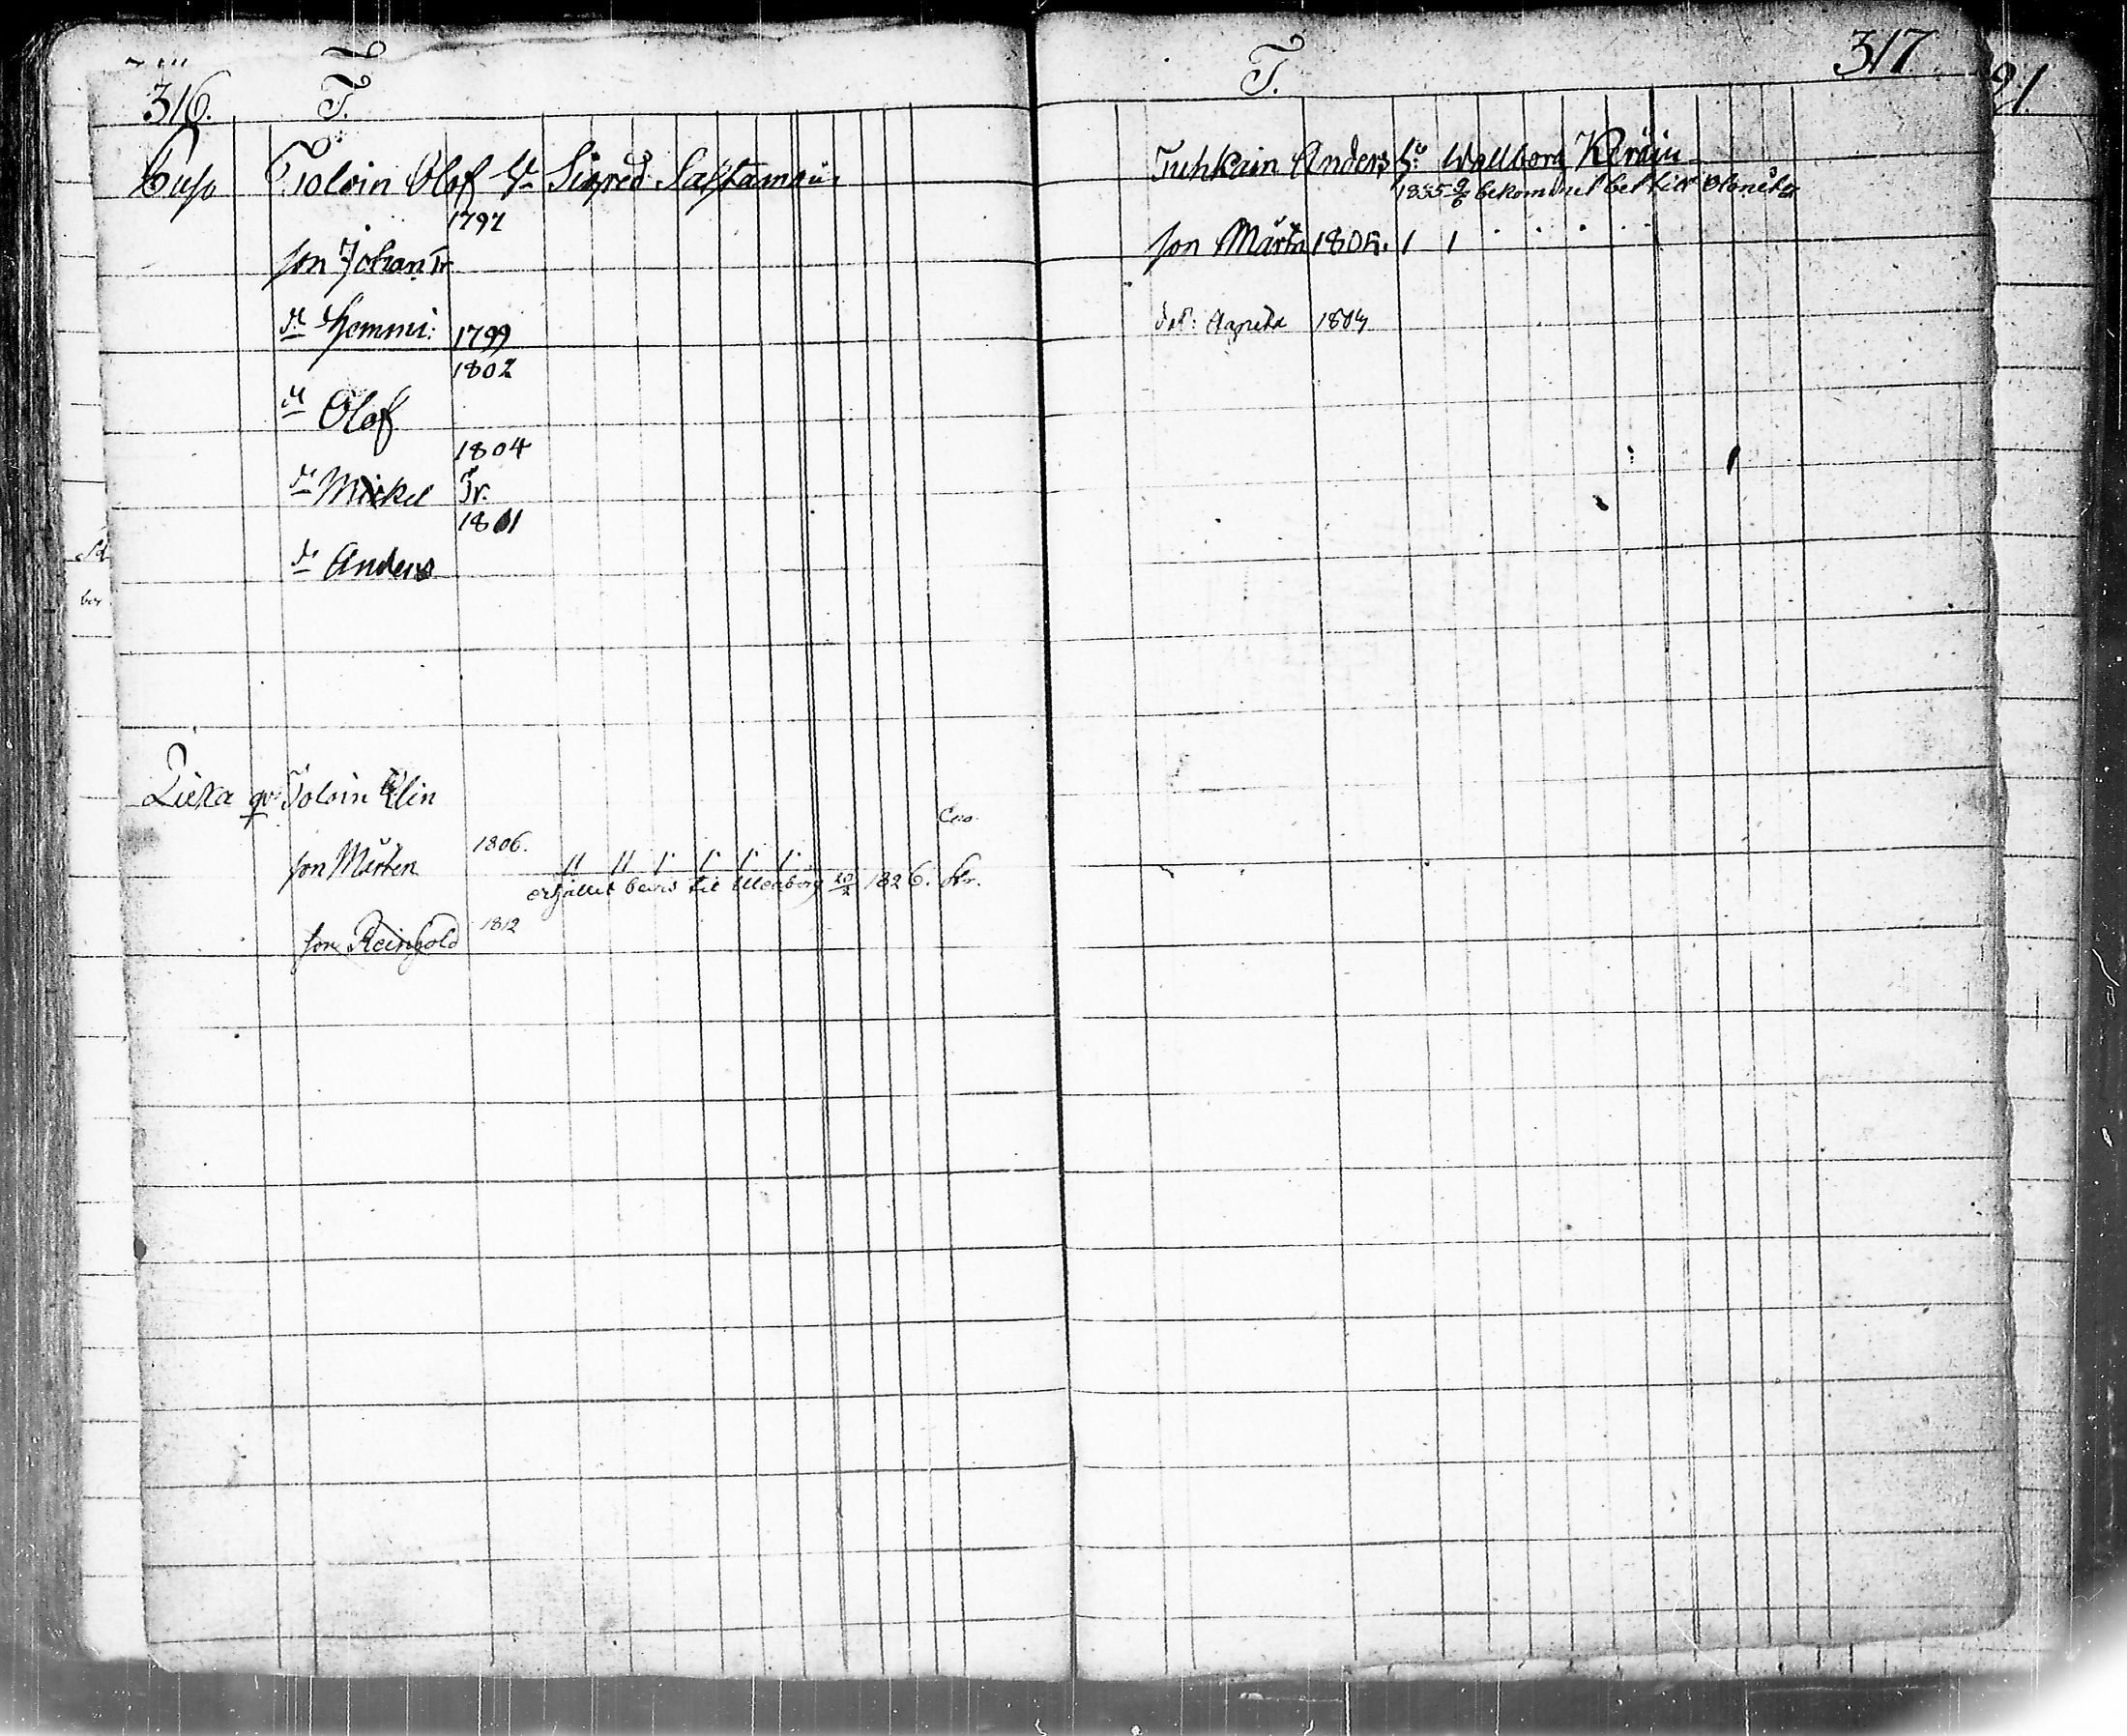 316. T.
Toloin Olof Sigred Saastamoin
1797
son Johan Tr
dn Hemmi: 1799
1802
dn Olof
1804
dn Mickel Tr.
1801
dn Anders
Liexa qv: Toloin Elin
son Mårten 1806.
erhållit bevis til Uleåborg 20/2 1826.
son Reinhold 1812
T. 317
Tuhkain Anders hu Wallborg Keräin
1835 9/6 bekommit bet till
son Mårten 1805. 1 1
dot: Agneta 1809